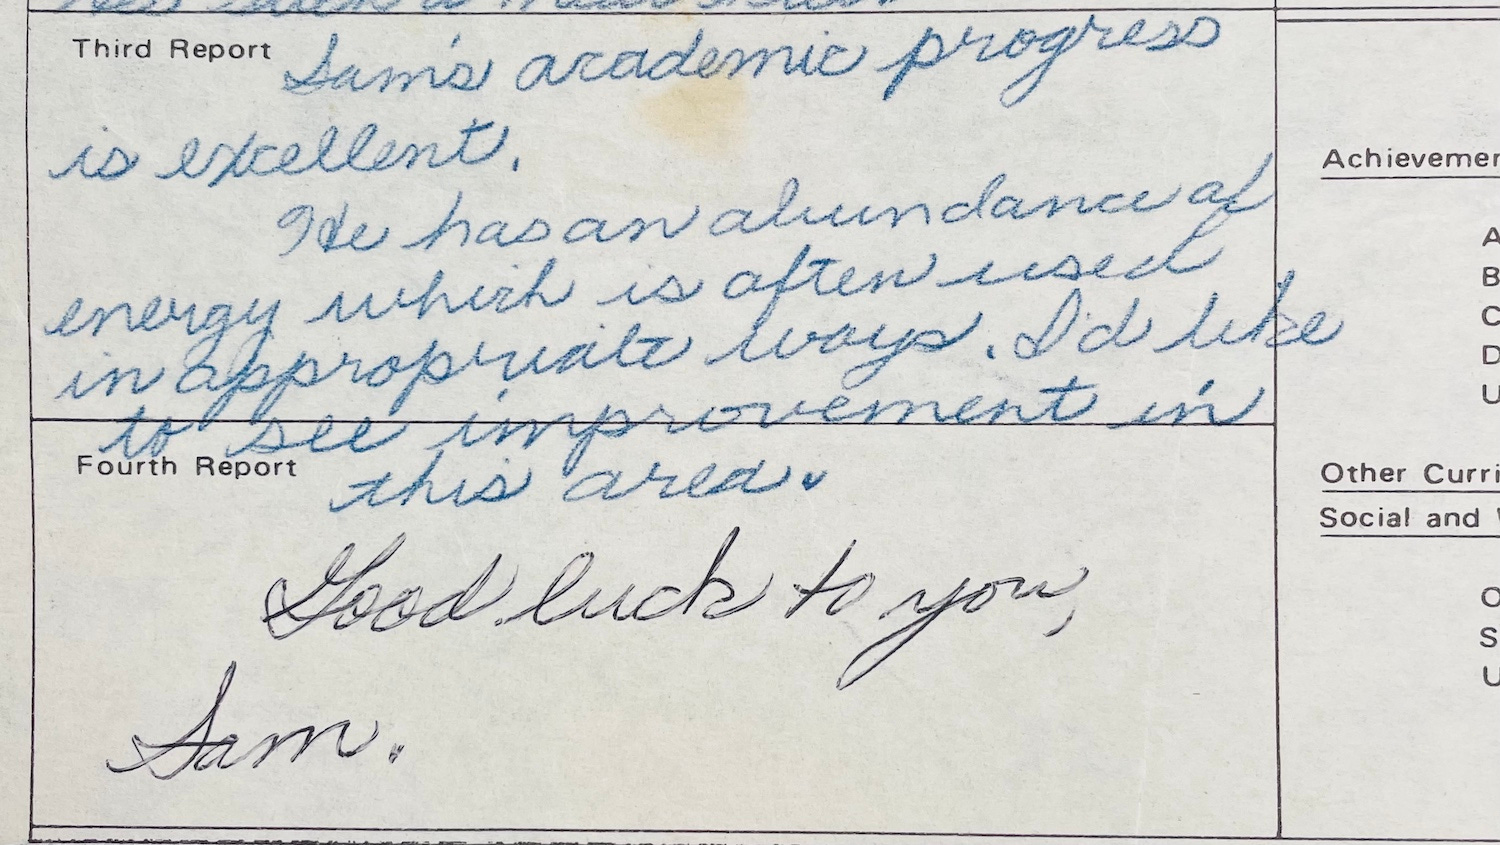 Third Report
Sam's academic progress
is excellent.
He has an abundance of
energy which is often used
in appropriate ways. I'd like
to see improvement in
Fourth Report
this area.
Good luck to you,
Sam.
Achievemen
A
B
C
D
U
Other Curri
Social and
O
S
U